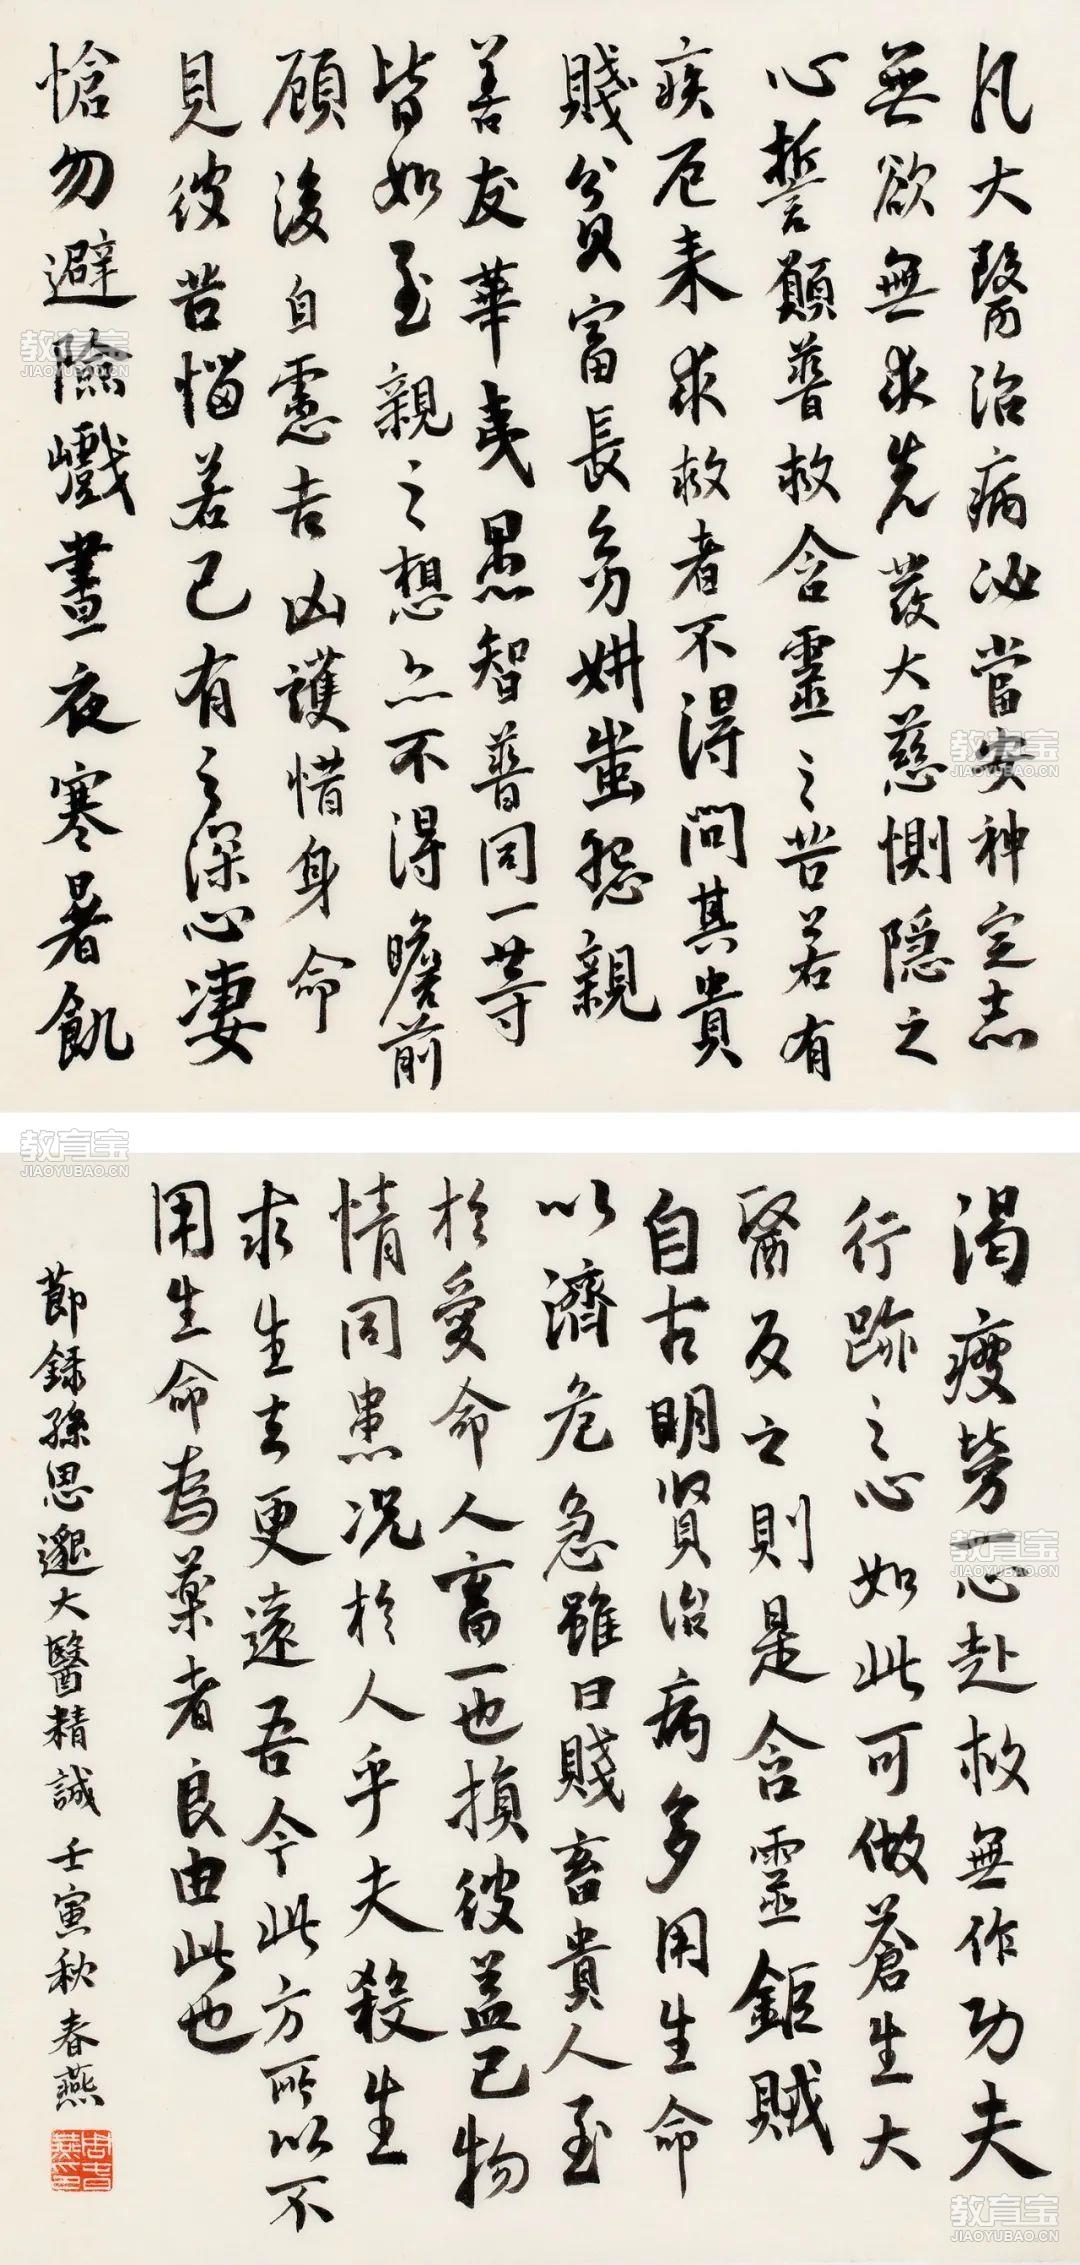 凡大醫治病必當安神定志
無欲無求先發大慈惻隱之
心誓願普救含靈之苦若有
疾厄来求救者不得問其貴
賤貧富長幼妍蚩怨親
善友華夷愚智普同一等
皆如至親之想亦不得瞻前
顧後自慮吉凶護惜身命
見彼苦惱若己有之深心凄
愴勿避險巇晝夜寒暑飢
渴疲勞一心赴救無作功夫
行跡之心如此可做蒼生大
醫反之則是含靈鉅賊
自古明賢治病多用生命
以濟危急雖曰賤畜貴人至
於愛命人畜一也損彼益己物
情同患况於人乎夫殺生
求生去生更遠吾今此方所以不
用生命為藥者良由此也
節録孫思邈大醫精誠 壬寅秋春燕
教育宝
JIAOYUBAO.CN
教育宝
JIAOYUBAO.CN
教育宝
JIAOYUBAO.CN
教育宝
JIAOYUBAO.CN
教育宝
JIAOYUBAO.CN